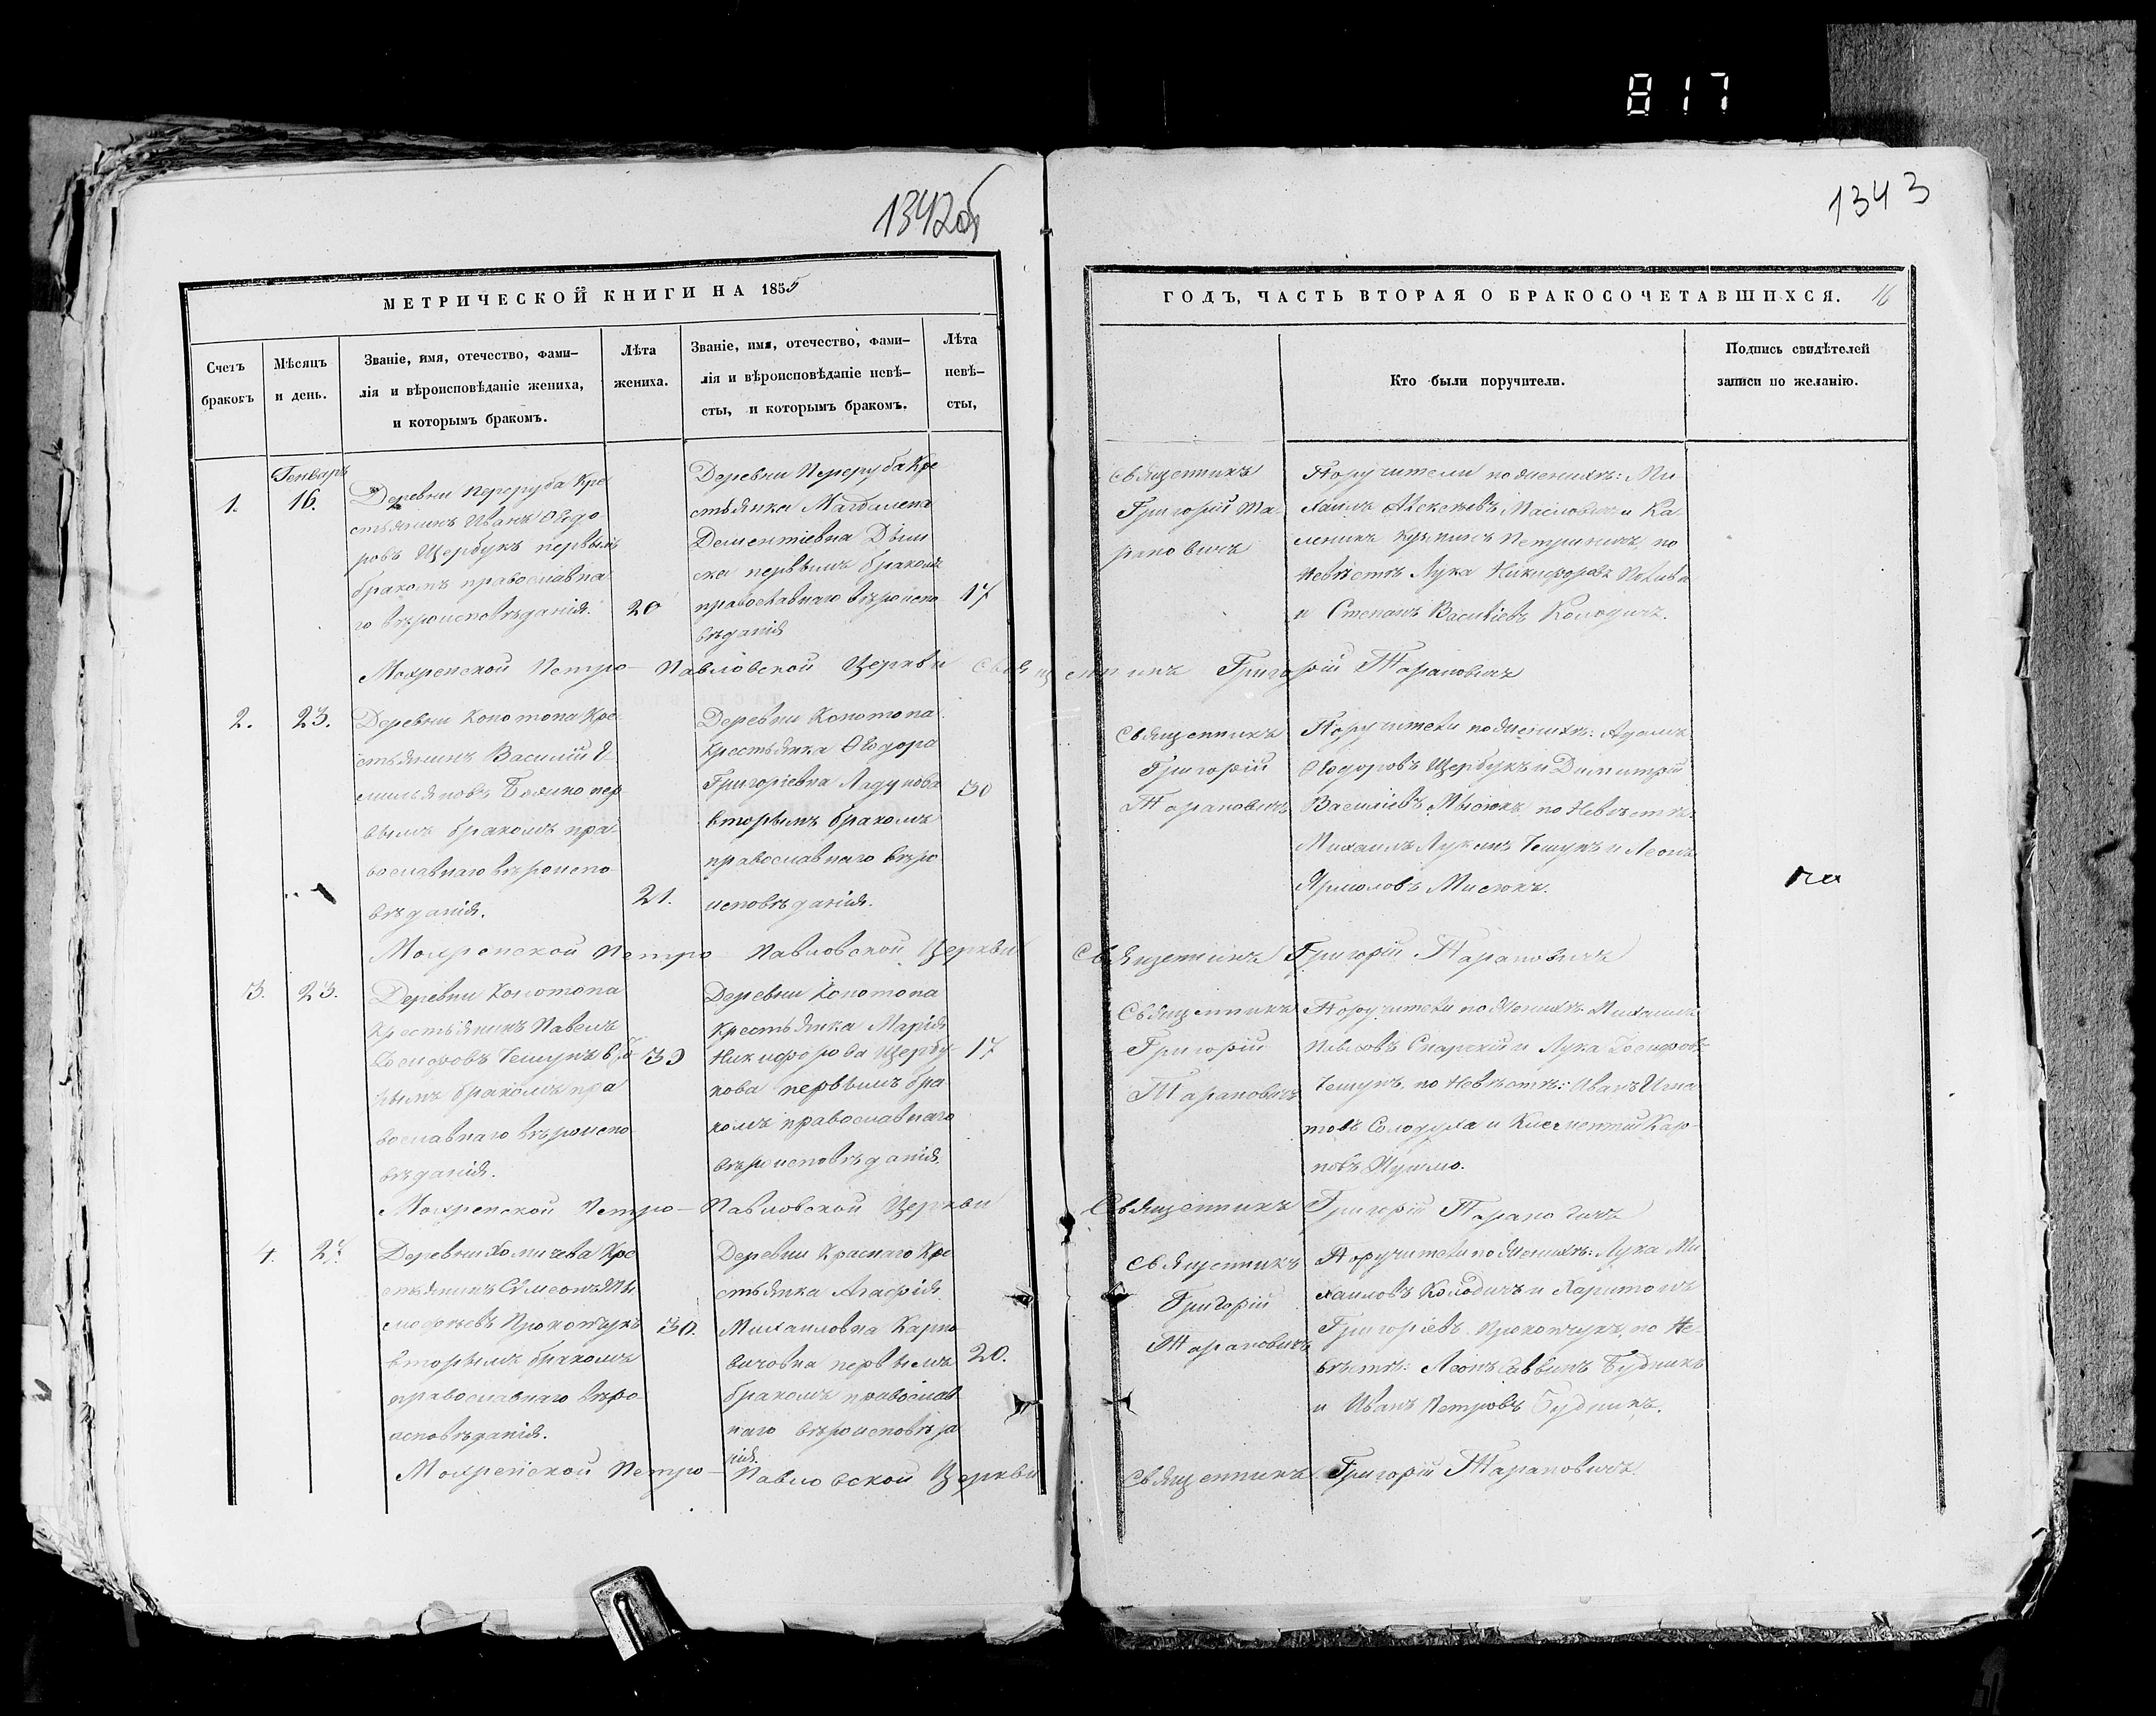 817
1342об
1343
МЕТРИЧЕСКОЙ КНИГИ НА 1855
ГОДЪ, ЧАСТЬ ВТОРАЯ О БРАКОСОЧЕТАВШИХСЯ. 16
Счетъ
браковъ
Мѣсяцъ
и день.
Званіе, имя, отечество, фами-
лія и вѣроисповѣданіе жениха,
и которымъ бракомъ.
Лѣта
жениха.
Званіе, имя, отечество, фами-
лія и вѣроисповѣданіе невѣ-
сты, и которымъ бракомъ.
Лѣта
невѣ-
сты,
Кто были поручители.
Подпись свидѣтелей
записи по желанію.
1.
Генваръ
16.
Деревни Переруба Кре
стьянинъ Иванъ Ѳеодо
ровъ Щербукъ первымъ
бракомъ православна
го вѣроисповѣданія.
20
Деревни Переруба Кре
стьянка Магдалена
Дементіевна
первымъ бракомъ
православнаго вѣроиспо
вѣданія
17
Священникъ
Григорій Та-
рановичъ
Поручители по женихѣ: Ми
хаилъ Алексѣевъ Масловичъ и Ка-
леникъ Кузминъ Петрикевичъ, по
Невѣстѣ Лука Никифоровъ
и Степанъ Василіевъ Колодичъ.
Мохренской Петро-Павловской Церкви Священникъ Григорій Тарановичъ
2.
23.
Деревни Конотопа Кре
стьянинъ Василій Е-
мильяновъ пер
вымъ бракомъ пра-
вославнаго вѣроиспо
вѣданія.
21.
Деревни Конотопа
Крестьянка Ѳеодора
Григоріевна Ладунова
вторымъ бракомъ
православнаго вѣро
исповѣданія.
30
Священникъ
Григорій
Тарановичъ
Поручители по женихѣ: Адамъ
Ѳеодоровъ Щербукъ и Димитрій
Василіевъ Мысюкъ, по Невѣстѣ:
Михаилъ Лукинъ Чешунъ и Леонъ
Ярмоловъ Мисюкъ.
Мохренской Петро-Павловской Церкви Священникъ Григорій Тарановичъ
3.
23.
Деревни Конотопа
Крестьянинъ Павелъ
Іосифовъ Чешунъ вто
рымъ бракомъ пра
вославнаго вѣроиспо
вѣданія.
30
Деревни Конотопа
Крестьянка Марія
Никифорова Щербу-
кова первымъ бра
комъ православнаго
вѣроисповѣданія.
17
Священникъ
Григорій
Тарановичъ
Поручители по Женихѣ: Михаилъ
Павловъ и Лука Іосифовъ
Чешунъ, по Невѣстѣ: Иванъ Игна
товъ Солодуха и Климентій Кар-
повъ
Мохренской Петро-Павловской Церкви Священникъ Григорій Тарановичъ
4.
27.
Деревни Хомичева Кре
стьянинъ Сѵмеонъ Ти
мофеевъ Прокопчукъ
вторымъ бракомъ
православнаго вѣро
исповѣданія.
30.
Деревни Краснаго Кре
стьянка Агафія
Михаиловна Карпо
вичовна первымъ
бракомъ православ
наго вѣроисповѣда
нія.
20.
Священникъ
Григорій
Тарановичъ
Поручители по Женихѣ: Лука Ми
хаиловъ Колодичъ и Харитонъ
Григоріевъ Прокопчукъ, по Не-
вѣстѣ: Леонъ Саввинъ Будникъ
и Иванъ Петровъ Будникъ.
Мохренской Петро-Павловской Церкви Священникъ Григорій Тарановичъ.